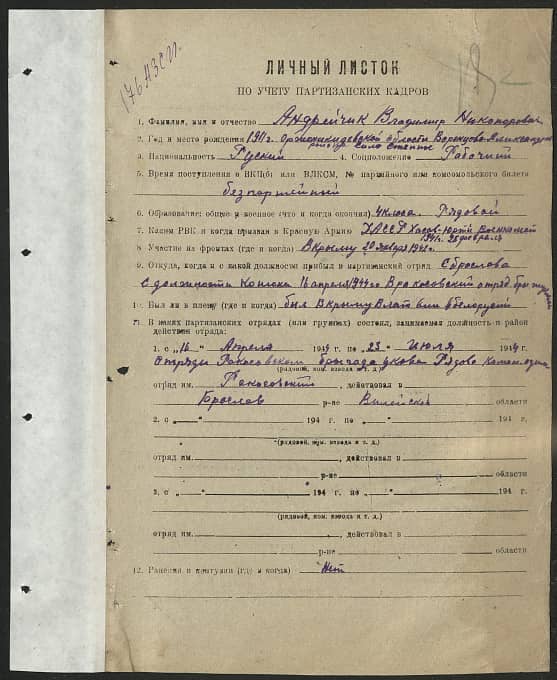 176 АЗСП.
ЛИЧНЫЙ ЛИСТОК
ПО УЧЕТУ ПАРТИЗАНСКИХ КАДРОВ
1. Фамилия, имя и отчество Андрейчик Владимир Никанорович
2. Год и место рождения 1911г. Орджоникидзевской области Воронцово-Александров
район село Степное
3. Национальность Руский 4. Соцположение Рабочий
5. Время поступления в ВКП(б) или ВЛКСМ, № партийного или комсомольского билета
безпартейный
6. Образование: общее и военное (что и когда окончил) 4 класа. Рядовой
7. Каким РВК и когда призван в Красную Армию ДАССР Хасав-Юрт Военкомат
1941г. 26 февраля
8. Участие на фронтах (где и когда) В крыму 20 января 1942г.
9. Откуда, когда и с какой должности прибыл в партизанский отряд С брослова
с должности Конюха 16 апреля 1944го В рокосовский отряд
10. Был ли в плену (где и когда) был В крыму Влатвии у белорусии
11. В каких партизанских отрядах (или группах) состоял, занимаемая должность и район
действия отряда:
1. с „16 “ Апреля 1944 г. по „ 23 “ Июля 1944 г.
отряды Рокосовском бригада Рядово
(рядовой, ком. взвода и т. д.)
отряд им. Рокосовский, действовал в
Брослав р-не Вилейской области
2. с „ “ 194 г. по „ “ 194 г.
(рядовой, ком. взвода и т. д.)
отряд им. , действовал в
р-не области
3. с „ “ 194 г. по „ “ 194 г.
(рядовой, ком. взвода и т. д.)
отряд им. , действовал в
р-не области
12. Ранения и контузии (где и когда) Нет